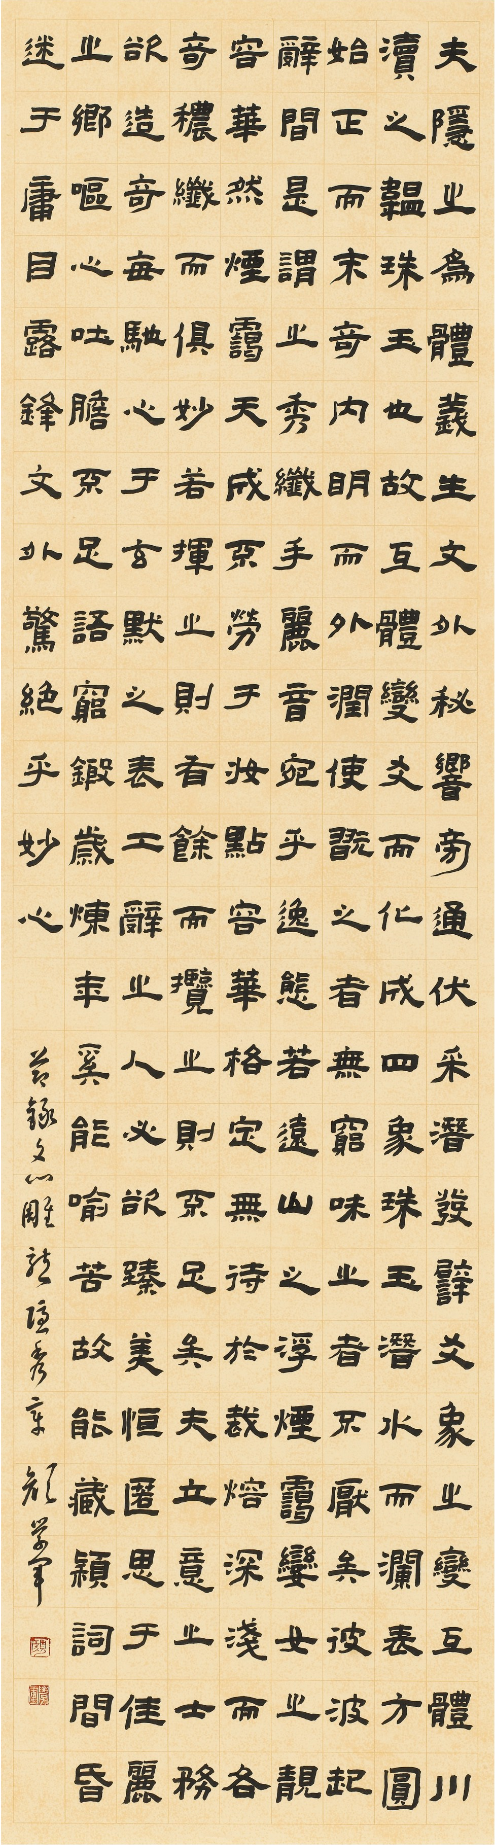 夫隱之為體義生文外秘響旁通伏采潛發譬爻象之變互體川
瀆之韞珠玉也故互體變爻而化成四象珠玉潛水而瀾表方圓
始正而末奇內明而外潤使翫之者無窮味之者不厭矣彼波起
辭間是謂之秀纖手麗音宛乎逸態若遠山之浮煙靄孌女之靚
容華然煙靄天成不勞于妝點容華格定無待於裁熔深淺而各
奇穠纖而俱妙若揮之則有餘而攬之則不足矣夫立意之士務
欲造奇每馳心于玄默之表工辭之人必欲臻美恒匿思于佳麗
之鄉嘔心吐膽不足語窮鍛歲煉年奚能喻苦故能藏穎詞間昏
迷于庸目露鋒文外驚絕乎妙心
節錄文心雕龍隱秀章 顏學軍